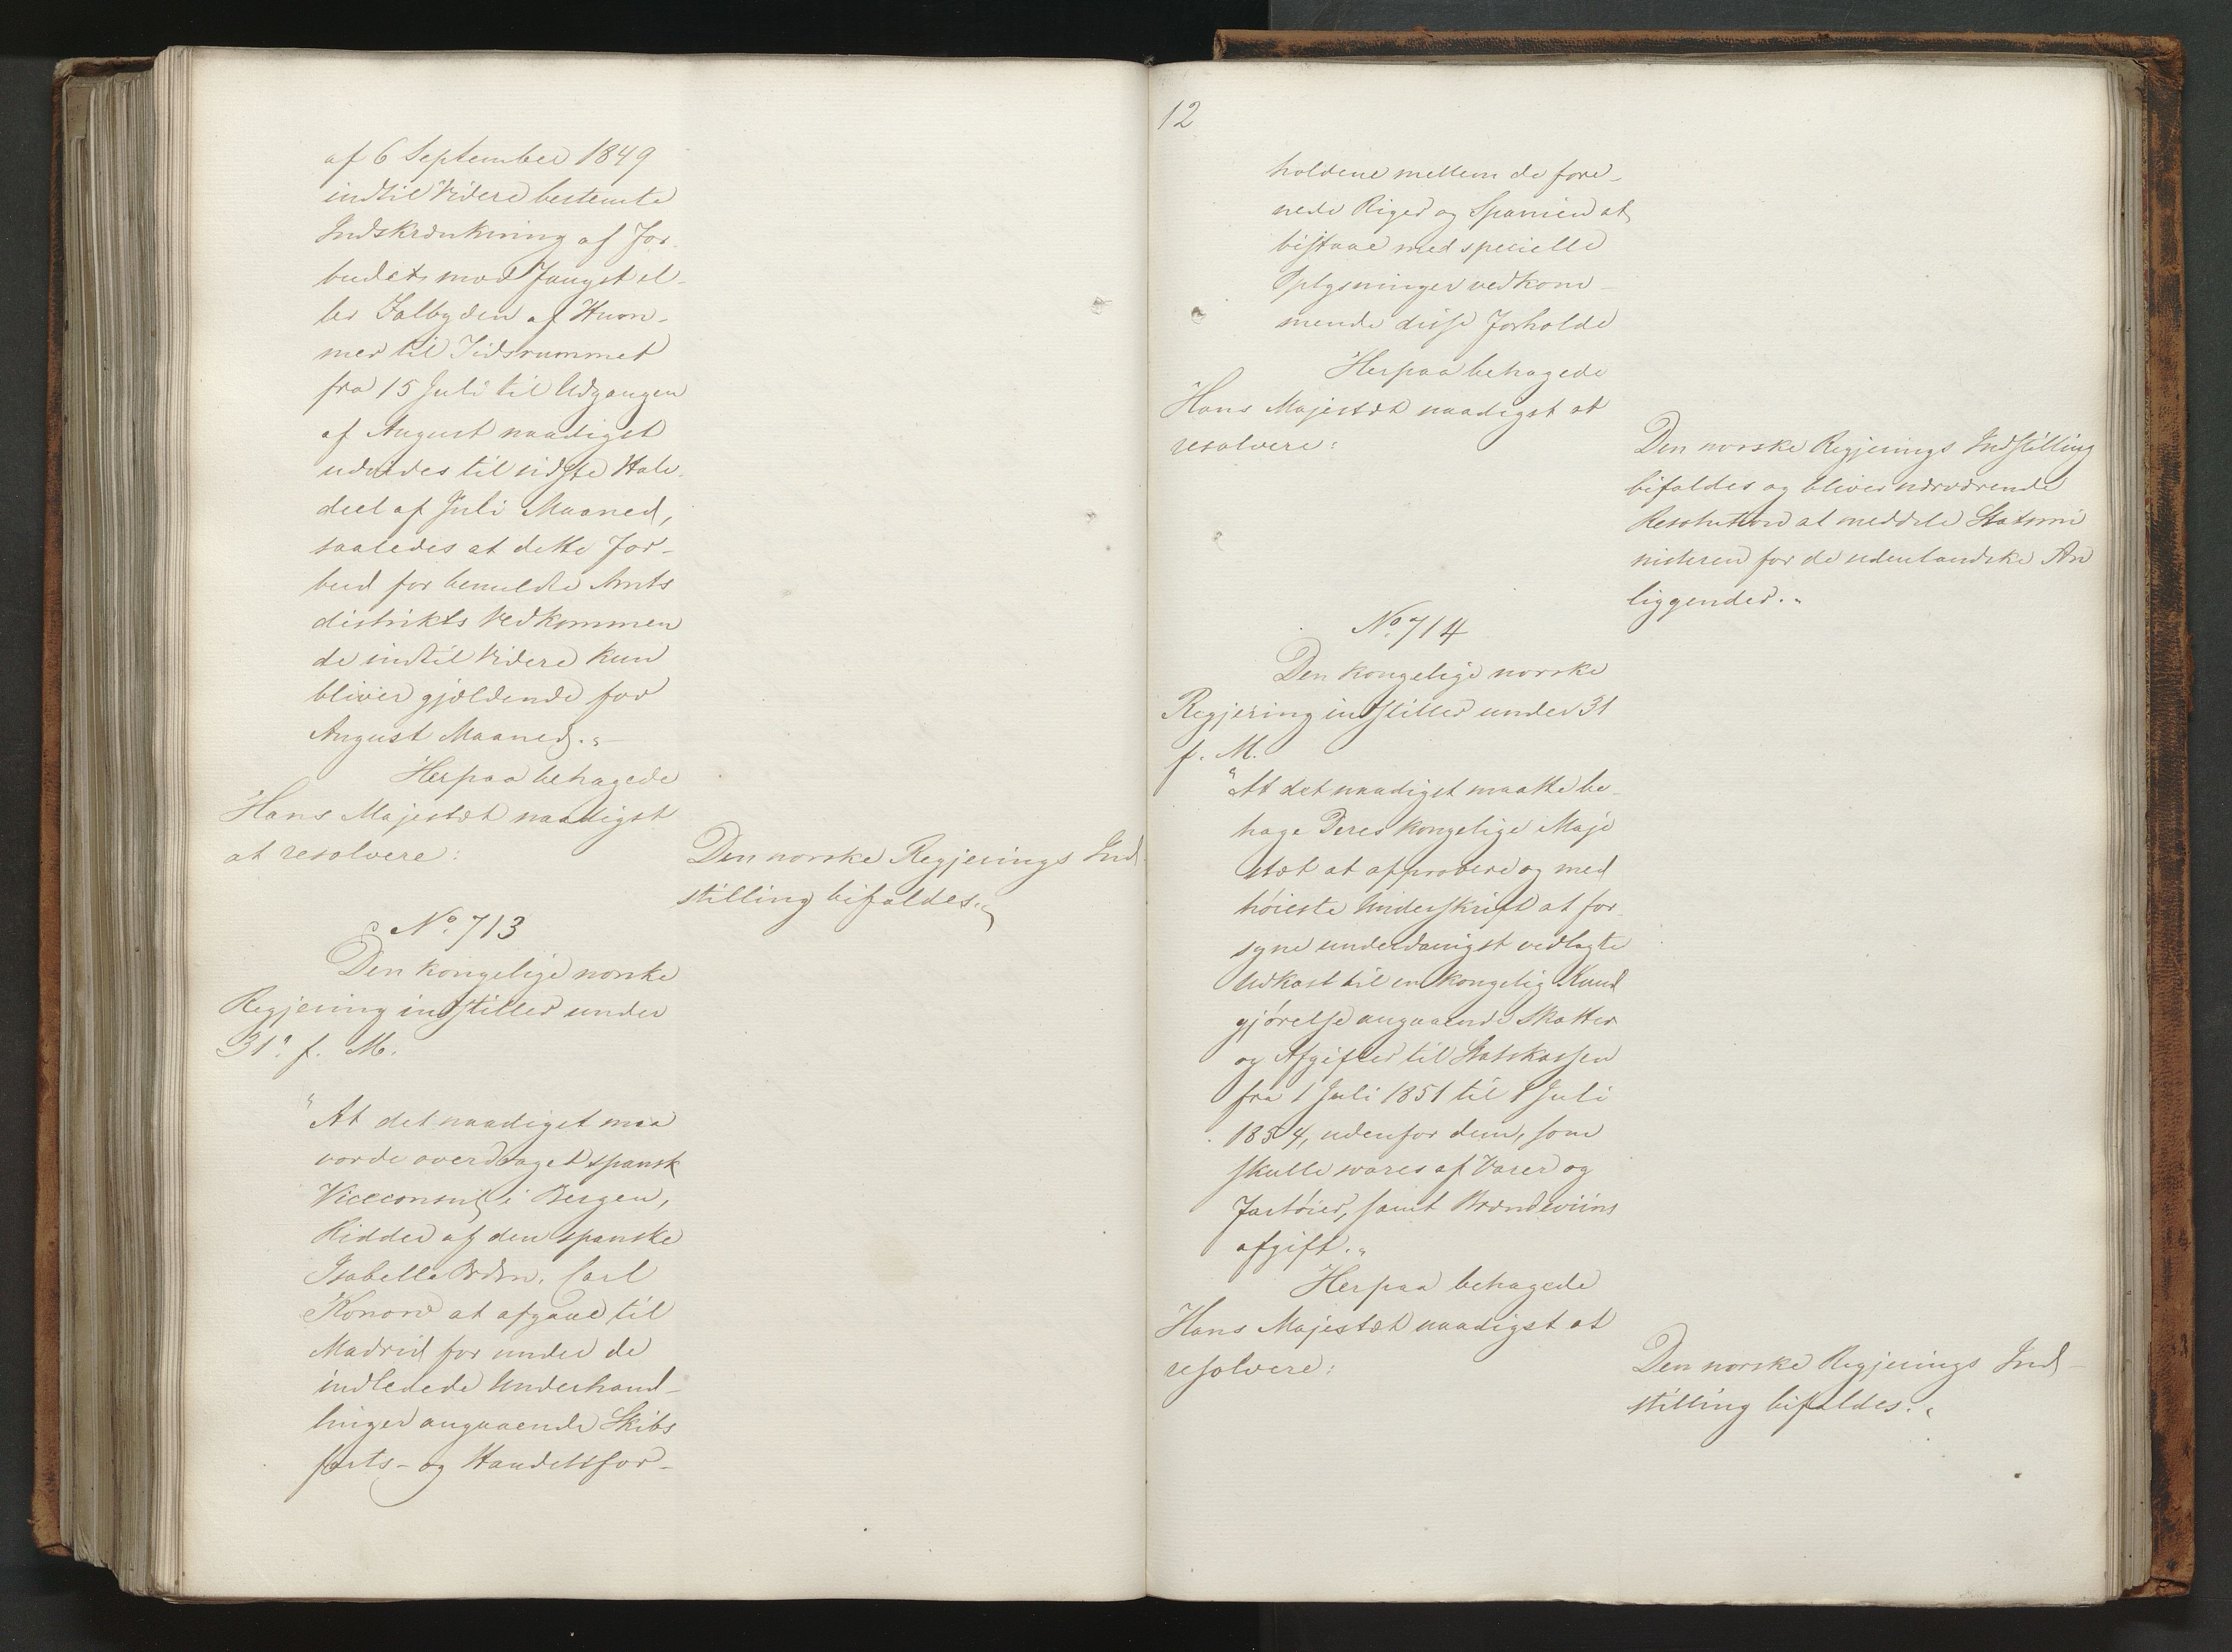 af 6 September 1849
indtil Videre bestemte
Indskrænkning af For-
budet mod Fangst el-
ler Falbyden af Hum-
mer til Tidsrummet
fra 15 Juli til Udgangen
af August naadigst
udvides til sidste Halv-
deel af Juli Maaned,
saaledes at dette For-
bud for bemeldte Amts
distrikts Vedkommen
de indtil Videre kun
bliver gjældende for
August Maaned.„
Herpaa behagede
Hans Majestæt naadigst
at resolvere:
Den norske Regjerings Ind-
stilling bifaldes.„
No. 713
Den kongelige norske
Regjering indstiller under
31. f. M.
"At det naadigst maa
vorde overdraget spansk
Viceconsul i Bergen,
Ridder af den spanske
Isabella Orden, Carl
Konow at afgaae til
Madrid for under de
indledede Underhand-
linger angaaende Skibs
farts- og Handelsfor-
12
holdene mellem de fore-
nede Riger og Spanien at
bistaae med specielle
Oplysninger vedkom-
mende disse Forholde
Herpaa behagede
Hans Majestæt naadigst at
resolvere:
Den norske Regjerings Indstilling
bifaldes og bliver nærværende
Resolution at meddele Statsmi
nisteren for de udenlandske An
liggender.„
No. 714
Den kongelige norske
Regjering indstiller under 31
f. M.
"At det naadigst maatte be-
hage Deres Kongelige Maje
stæt at approbere og med
høieste Underskrift at for-
syne underdanigst vedlagte
Udkast til en kongelig Kund
gjørelse angaaende Skatter
og Afgifter til Statskassen
fra 1 Juli 1851 til 1 Juli
1854, udenfor dem, som
skulle svares af Varer og
Fartøier, samt Brændeviins
afgift.„
Herpaa behagede
Hans Majestæt naadigst at
resolvere:
Den norske Regjerings Ind-
stilling bifaldes.„